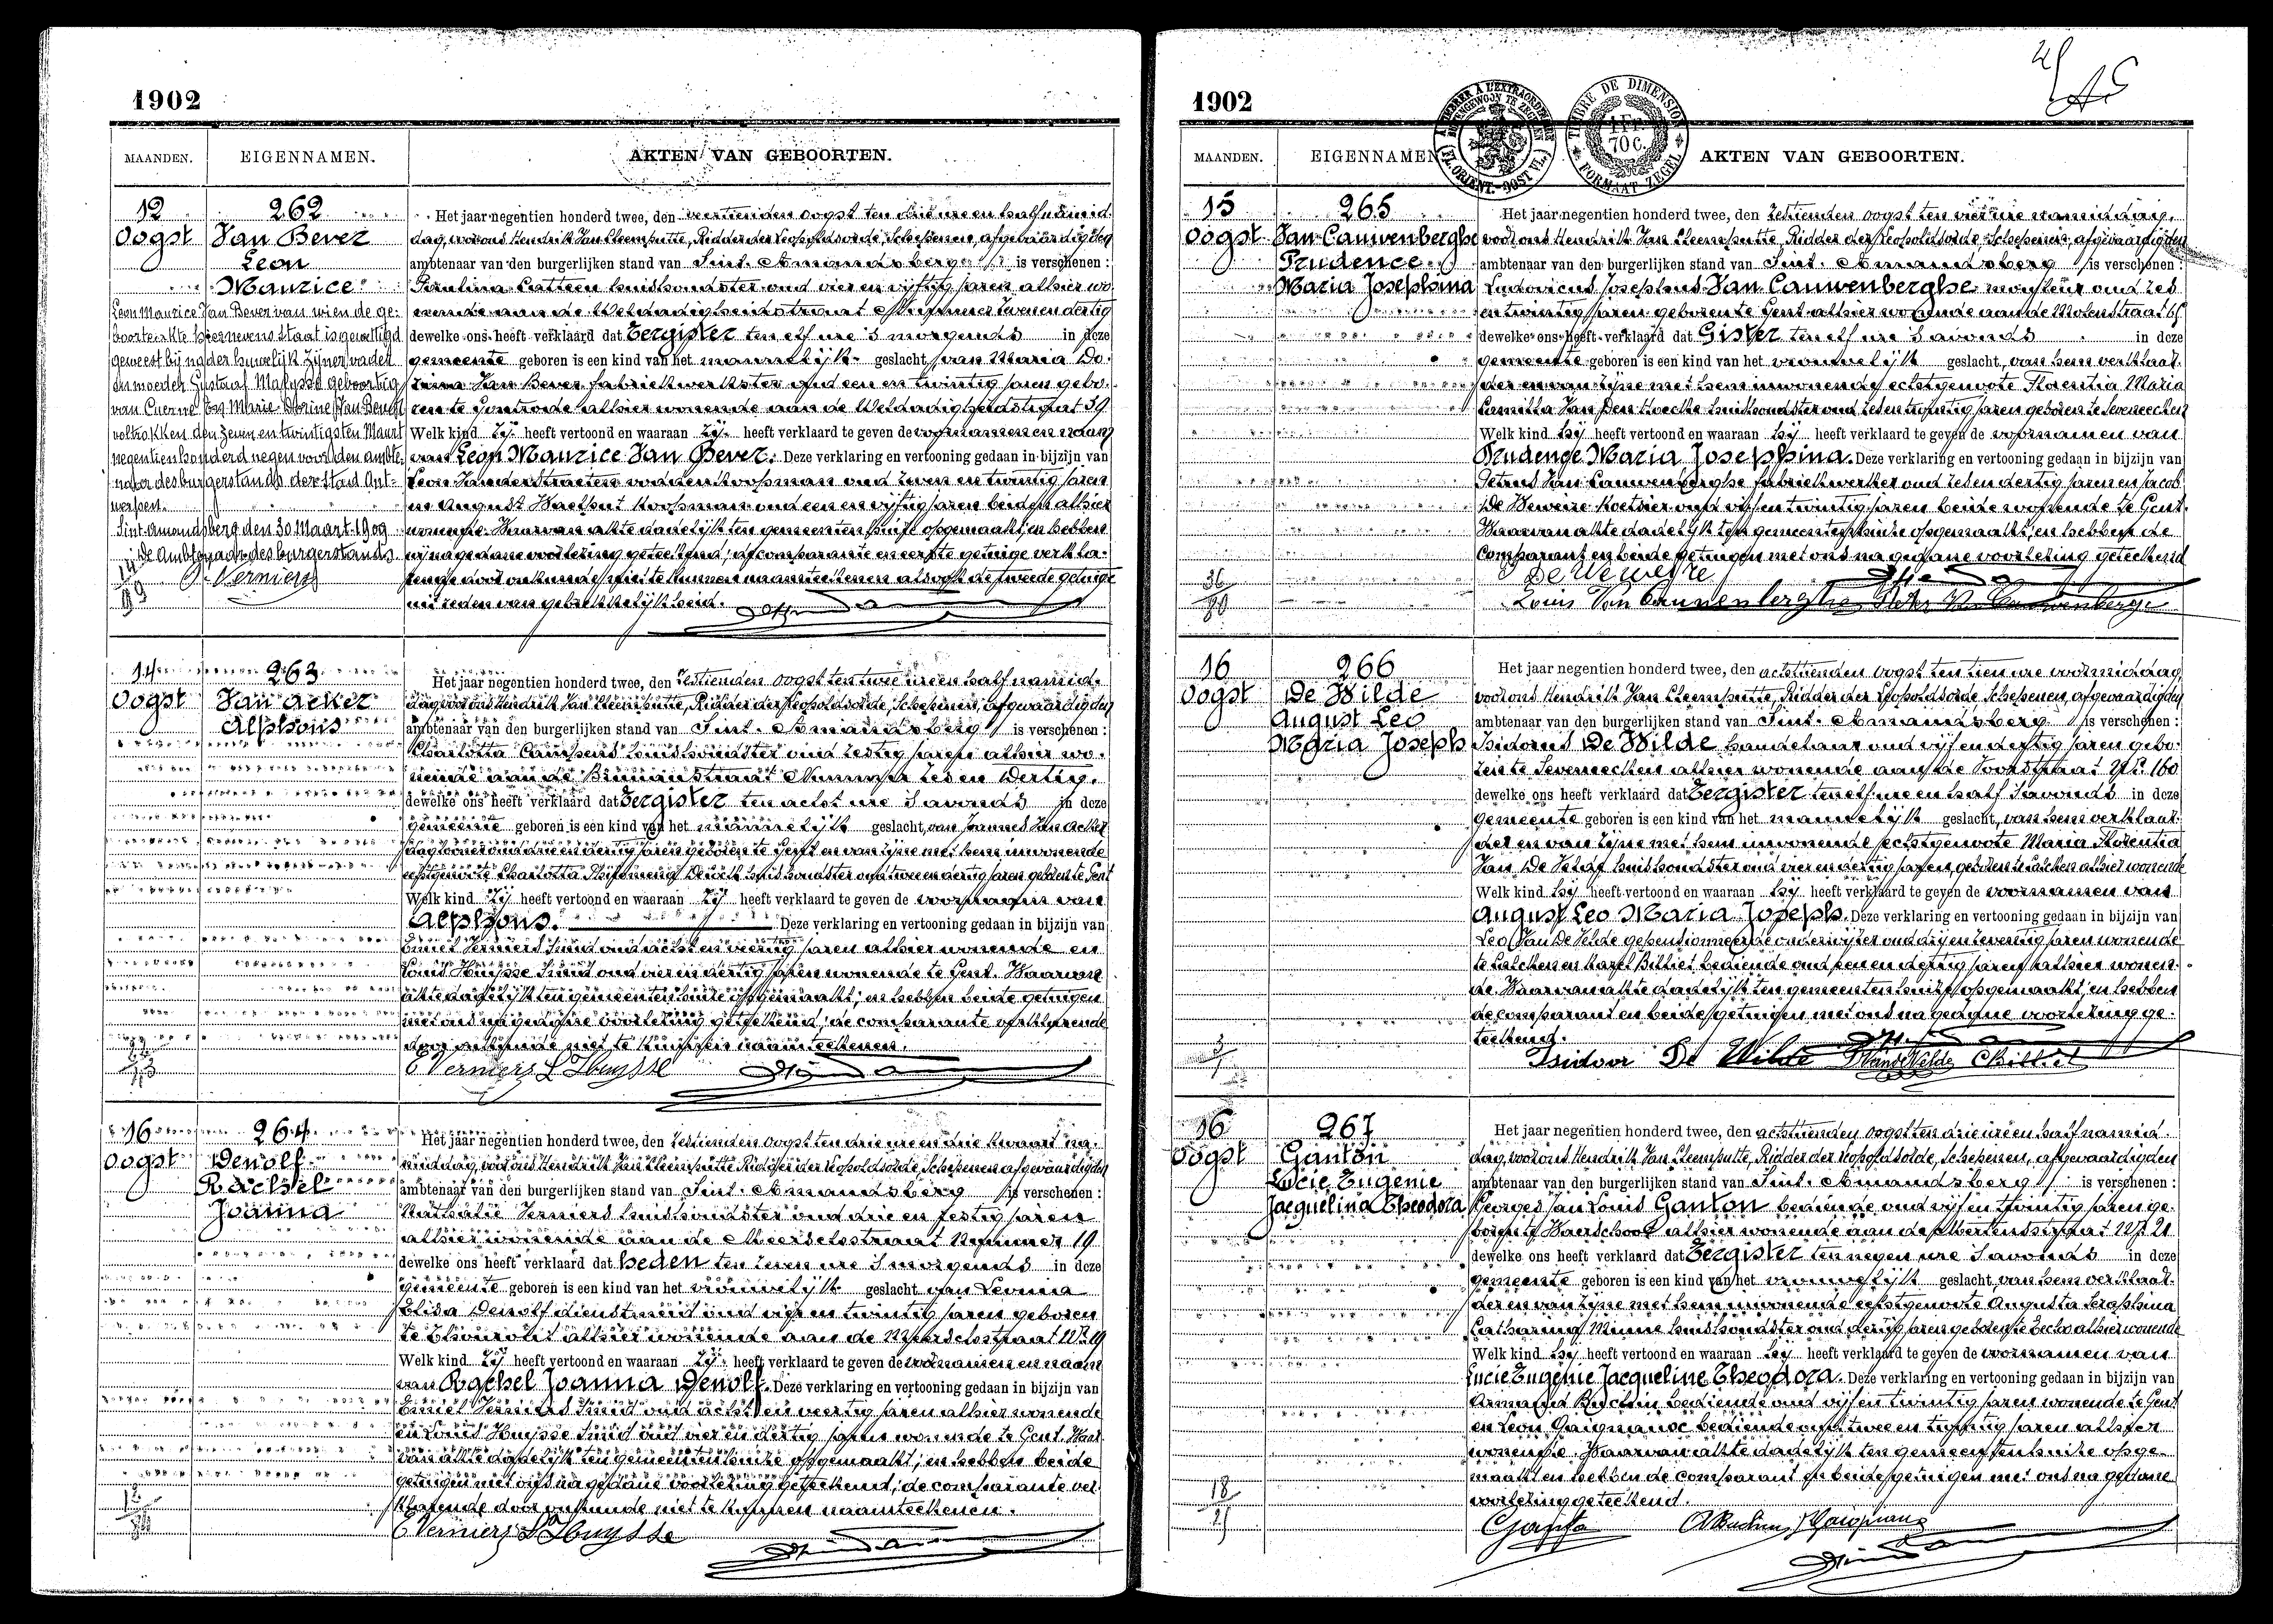 1902
MAANDEN. EIGENNAMEN. AKTEN VAN GEBOORTEN.
12 Oogst
262
Van Bever
Leon
Maurice
Leon Maurice Van Bever van wien de ge-
boorteakte hiernevens staat is gewettigd
geweest bij nader huwelijk zijner vader
en moeder Gustaaf Malysse geboortig
van Cuerne en Marie Dorine Van Bever
voltrokken den zeven en twintigsten Maart
negentien honderd negen voor den ambte-
naar des burgerstands der stad Ant-
werpen.
Sint-Amandsberg den 30 Maart 1909
De Ambtenaar des burgerstands.
Verniers
Het jaar negentien honderd twee, den veertienden oogst ten drie ure en half namid-
dag, voor ons Hendrik Van Cleemputte, Ridder der Leopoldsorde, Schepenen, afgevaardigden
ambtenaar van den burgerlijken stand van Sint-Amandsberg is verschenen:
Paulina Catteeu huishoudster oud vier en vijftig jaren alhier wo-
nende aan de Weldadigheidstraat Nummer twee en dertig
dewelke ons heeft verklaard dat Eergister ten elf ure 's morgends in deze
gemeente geboren is een kind van het mannelijk geslacht, van Maria Do-
rina Van Bever fabriekwerkster oud een en twintig jaren gebo-
ren te Gontrode alhier wonende aan de Weldadigheidstraat 39
Welk kind zij heeft vertoond en waaraan zij heeft verklaard te geven de voornamen en naam
van Leon Maurice Van Bever. Deze verklaring en vertooning gedaan in bijzijn van
Leon Vanderstraeten voddenkoopman oud zeven en twintig jaren
en August Waelput koopman oud een en vijftig jaren beiden alhier
wonende. Waarvan akte dadelijk ten gemeentenhuize opgemaakt; en hebben
wij na gedane voorlezing geteekend; de comparante en eerste getuige verkla-
rende door onkunde niet te kunnen naamteekenen alsook de tweede getuige
uit reden van gebrekkelijkheid.
14 Oogst
263
Van Acker
Alphons
Het jaar negentien honderd twee, den zestienden oogst ten twee ure en half namid-
dag voor ons Hendrik Van Cleemputte, Ridder der Leopoldsorde, Schepenen, afgevaardigden
ambtenaar van den burgerlijken stand van Sint-Amandsberg is verschenen:
Charlotta Campens huishoudster oud zestig jaren alhier wo-
nende aan de Nummer zes en dertig.
dewelke ons heeft verklaard dat Eergister ten acht ure 's avonds in deze
gemeente geboren is een kind van het mannelijk geslacht, van Joannes Van Acker
daglooner oud drie en dertig jaren geboren te Gent en van zijne met hem inwonende
echtgenoote Charlotta huishoudster oud twee en dertig jaren geboren te Gent
Welk kind zij heeft vertoond en waaraan zij heeft verklaard te geven de voornaam van
Alphons. Deze verklaring en vertooning gedaan in bijzijn van
Emiel Verniers Smid oud acht en veertig jaren alhier wonende en
Louis Huysse Smid oud vier en dertig jaren wonende te Gent. Waarvan
akte dadelijk ten gemeentenhuize opgemaakt; en hebben beide getuigen
met ons na gedane voorlezing geteekend; de comparante verklarende
door onkunde niet te kunnen naamteekenen.
E Verniers L Huysse
16 Oogst
264
Denolf
Rachel
Joanna
Het jaar negentien honderd twee, den zestienden oogst ten drie ure en drie kwaart na-
middag, voor ons Hendrik Van Cleemputte Ridder der Leopoldsorde, Schepenen afgevaardigden
ambtenaar van den burgerlijken stand van Sint-Amandsberg is verschenen:
Nathalie Verniers huishoudster oud drie en zestig jaren
alhier wonende aan de Meerselsstraat Nummer 19
dewelke ons heeft verklaard dat heden ten zeven ure 's morgends in deze
gemeente geboren is een kind van het vrouwelijk geslacht van Leonia
Elisa Denolf dienstmeid oud vier en twintig jaren geboren
te Thourout alhier wonende aan de Meerselsstraat Nr. 19
Welk kind zij heeft vertoond en waaraan zij heeft verklaard te geven de voornamen en naam
van Rachel Joanna Denolf. Deze verklaring en vertooning gedaan in bijzijn van
Emiel Verniers Smid oud acht en veertig jaren alhier wonende
en Louis Huysse Smid oud vier en dertig jaren wonende te Gent. Waar-
van akte dadelijk ten gemeentenhuize opgemaakt; en hebben beide
getuigen met ons na gedane voorlezing geteekend; de comparante ver-
klarende door onkunde niet te kunnen naamteekenen.
E Verniers L Huysse
1902
TIMBRE DE DIMENSION
1 Fr. 70 c.
FORMAAT ZEGEL
MAANDEN. EIGENNAMEN AKTEN VAN GEBOORTEN.
15 Oogst
265
Van Cauwenberghe
Prudence
Maria Josephina
Het jaar negentien honderd twee, den zestienden oogst ten vier ure namiddag,
voor ons Hendrik Van Cleemputte, Ridder der Leopoldsorde Schepenen, afgevaardigden
ambtenaar van den burgerlijken stand van Sint-Amandsberg is verschenen:
Ludovicus Josephus Van Cauwenberghe oud zes
en twintig jaren geboren te Gent alhier wonende aan de Molenstraat
dewelke ons heeft verklaard dat Gister ten elf ure 's avonds in deze
gemeente geboren is een kind van het vrouwelijk geslacht, van hem verklaar-
der en van zijne met hem inwonende echtgenoote Florentia Maria
Camilla Van Den Hoecke huishoudster oud zes en twintig jaren geboren te Seveneecken
Welk kind hij heeft vertoond en waaraan hij heeft verklaard te geven de voornamen van
Prudence Maria Josephina. Deze verklaring en vertooning gedaan in bijzijn van
Petrus Van Cauwenberghe fabriekwerker oud zes en dertig jaren en Jacob
De Weweire Koetsier oud vijf en twintig jaren beide wonende te Gent.
Waarvan akte dadelijk ten gemeentenhuize opgemaakt; en hebben de
comparant en beide getuigen met ons na gedane voorlezing geteekend
De Weweire
Louis Van Cauwenberghe
16 Oogst
266
De Wilde
August Leo
Maria Joseph
Het jaar negentien honderd twee, den achttienden oogst ten tien ure voormiddag,
voor ons Hendrik Van Cleemputte, Ridder der Leopoldsorde Schepenen, afgevaardigden
ambtenaar van den burgerlijken stand van Sint-Amandsberg is verschenen:
Isidorus De Wilde handelaar oud vijf en dertig jaren gebo-
ren te Seveneecken alhier wonende aan de Voordstraat Nr. 160
dewelke ons heeft verklaard dat Eergister ten elf ure en half 's avonds in deze
gemeente geboren is een kind van het mannelijk geslacht, van hem verklaar-
der en van zijne met hem inwonende echtgenoote Maria Florentia
Van De Velde huishoudster oud vier en dertig jaren, geboren te Calcken alhier wonende
Welk kind hij heeft vertoond en waaraan hij heeft verklaard te geven de voornamen van
August Leo Maria Joseph. Deze verklaring en vertooning gedaan in bijzijn van
Leo Van De Velde gepensionneerde onderwijzer oud drij en zeventig jaren wonende
te Calcken en Karel Billiet bediende oud een en dertig jaren alhier wonen-
de. Waarvan akte dadelijk ten gemeentenhuize opgemaakt; en hebben
de comparant en beide getuigen met ons na gedane voorlezing ge-
teekend.
Isidoor De Wilde
16 Oogst
267
Ganton
Lucie Eugenie
Jacquelina Theodora
Het jaar negentien honderd twee, den achttienden oogst ten drie ure en half namid-
dag, voor ons Hendrik Van Cleemputte, Ridder der Leopoldsorde, Schepenen, afgevaardigden
ambtenaar van den burgerlijken stand van Sint-Amandsberg is verschenen:
Georges Jan Louis Ganton bediende oud vijf en twintig jaren ge-
boren te Waerschoot alhier wonende aan de Nr. 21
dewelke ons heeft verklaard dat Eergister ten negen ure 's avonds in deze
gemeente geboren is een kind van het vrouwelijk geslacht, van hem verklaar-
der en van zijne met hem inwonende echtgenoote Augusta Seraphina
Catharina Minne huishoudster oud dertig jaren geboren te Eecloo alhier wonende
Welk kind hij heeft vertoond en waaraan hij heeft verklaard te geven de voornamen van
Lucie Eugenie Jacqueline Theodora. Deze verklaring en vertooning gedaan in bijzijn van
Armand bediende oud vijf en twintig jaren wonende te Gent
en Leon bediende oud twee en twintig jaren alhier
wonende. Waarvan akte dadelijk ten gemeentenhuize opge-
maakt en hebben de comparant en beide getuigen met ons na gedane
voorlezing geteekend.